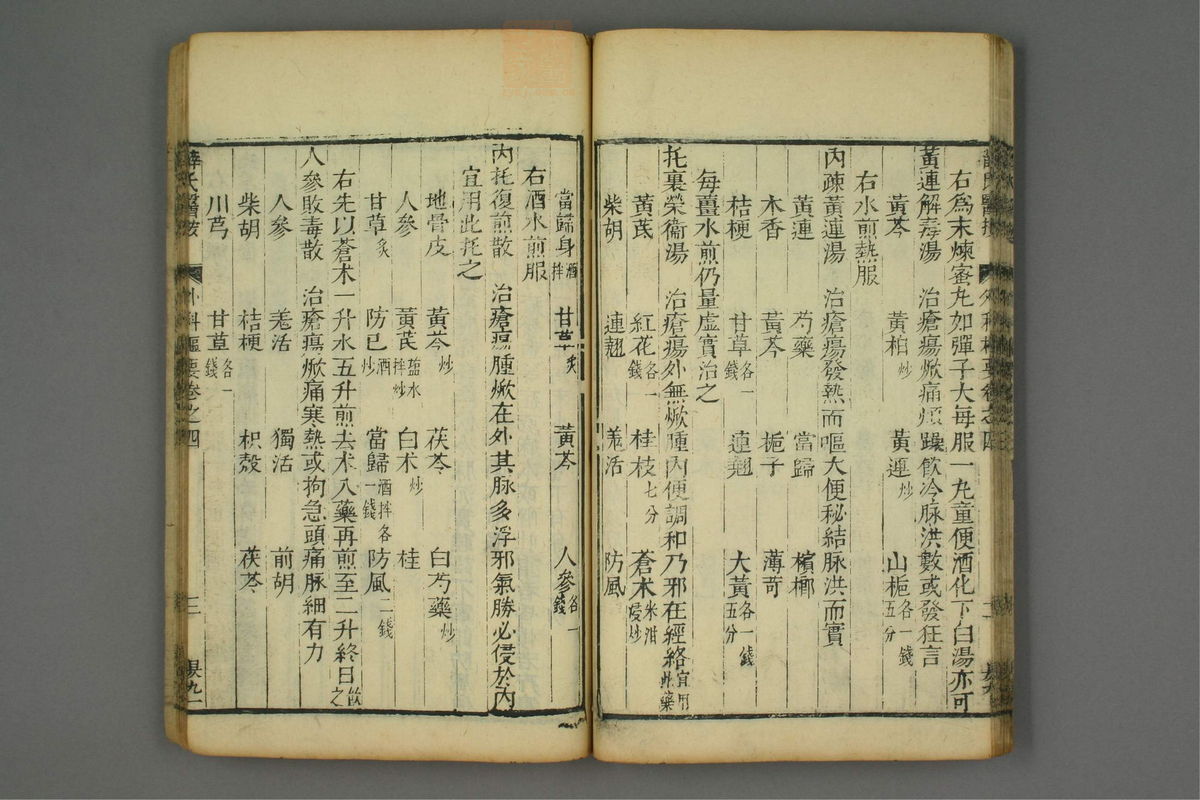 右為末煉蜜丸如彈子大每服一丸童便酒化下白湯亦可
黃連解毒湯　治瘡瘍焮痛煩躁飲冷脉洪數或發狂言
黃芩　黃栢炒　黃連炒　山梔各一錢五分
右水煎熱服
內疎黃連湯　治瘡瘍發熱而嘔大便秘結脉洪而實
黃連　芍藥　當歸　檳榔
木香　黃芩　梔子　薄荷
桔梗　甘草各一錢　連翹　大黃各一錢五分
每薑水煎仍量虛實治之
托裏榮衞湯　治瘡瘍外無焮腫內便調和乃邪在經絡宜用此藥
黃芪　紅花各一錢　桂枝七分　蒼术米泔浸炒
柴胡　連翹　羗活　防風
當歸身酒拌　甘草炙　黃芩　人參各一錢
右酒水煎服
內托復煎散　治瘡瘍腫焮在外其脉多浮邪氣勝必侵於內
宜用此托之
地骨皮　黃芩炒　茯苓　白芍藥炒
人參　黃芪鹽水拌炒　白术炒　桂
甘草炙　防已酒炒　當歸酒拌各一錢　防風二錢
右先以蒼术一升水五升煎去术入藥再煎至二升終日飲之
人參敗毒散　治瘡瘍焮痛寒熱或拘急頭痛脉細有力
人參　羗活　獨活　前胡
柴胡　桔梗　枳殼　茯苓
川芎　甘草各一錢
薛氏醫按　外科樞要卷之四　三　吳九一